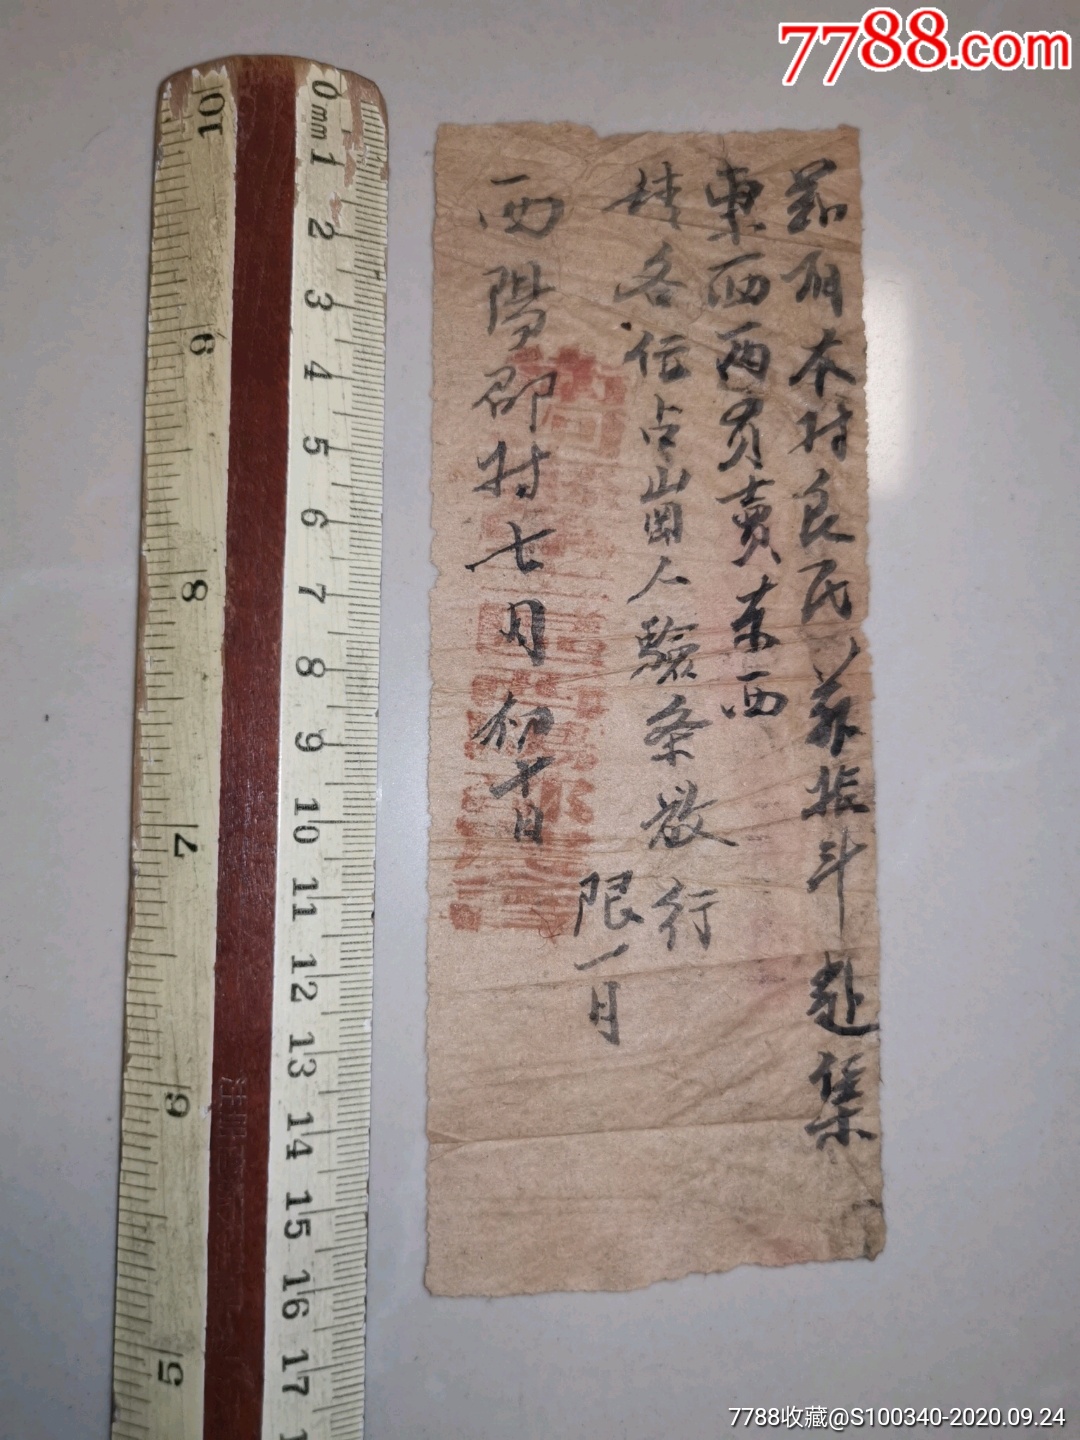 7788.com
茲有本村良民苏振斗赴集
東西西頁賣东西
各位占崗人驗条放行
限一日
西陽邵村七月初十日
0mm 1 2 3 4 5 6 7 8 9 10 11 12 13 14 15 16 17
10 9 8 7 6 5
7788收藏@S100340-2020.09.24